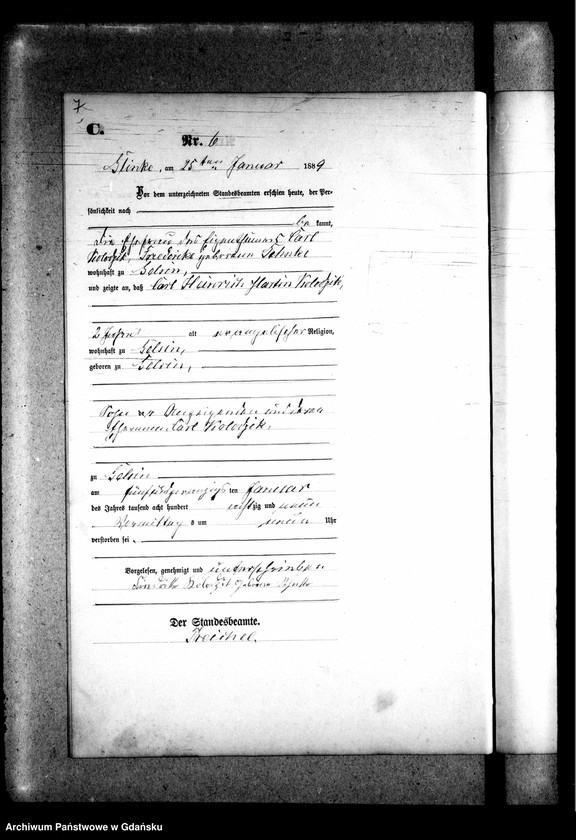 7
C.
Nr. 6
Glinke, am 25ten Januar 1889
Vor dem unterzeichneten Standesbeamten erschien heute, der Per-
sönlichkeit nach
be kannt,
die Ehefrau des Eigenthümers Carl
Friederike geborenen
wohnhaft zu
und zeigte an, daß Carl Heinrich Martin Kolodzik,
2 Jahre alt evangelischer Religion,
wohnhaft zu
geboren zu
Sohn der Anzeigenden und ihres
Ehemannes Carl Kolodzik,
zu
am fünfundzwanzigsten Januar
des Jahres tausend acht hundert achtzig und neun
Vormittags um neun Uhr
verstorben sei.
Vorgelesen, genehmigt und unterschrieben
geborene
Der Standesbeamte.
Archiwum Państwowe w Gdańsku